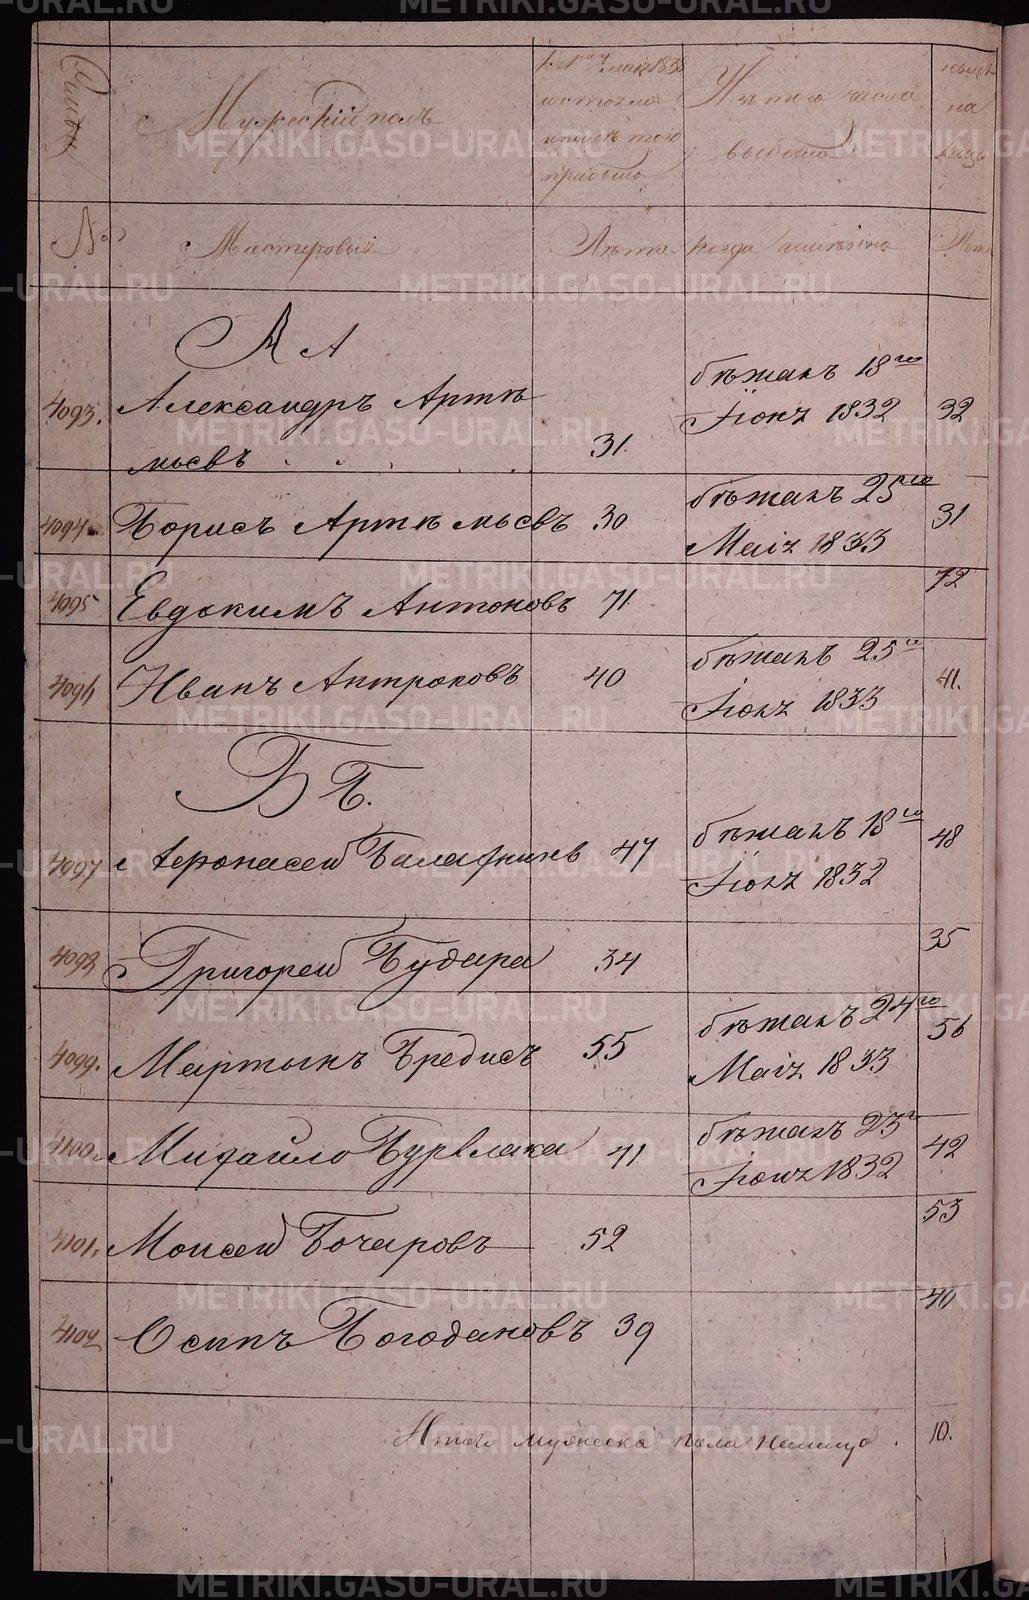 Мужескій полъ
Изъ того числа
выбыло
на
лицо
№
Мастеровыя
Лѣта
Когда
Лѣта
А А
4093.
Александръ Артѣ
мьевъ . . . . . .
31.
бѣжалъ 18го
Іюня 1832
32
4094
Борисъ Артѣмьевъ
30
бѣжалъ 25го
Маія 1833
31
4095
Евдокимъ Антоновъ
71
72
4096
Иванъ Антроповъ
40
бѣжалъ 25го
Іюня 1833
41.
Б Б.
4097
Афонасей
47
бѣжалъ 18го
Іюня 1832
48
4098
Григорей Будара
34
35
4099.
Мартынъ Бредисъ
55
бѣжалъ 24го
Маія 1833
56
4100
Михайло Бурлака
41
бѣжалъ 23г
Іюня 1832
42
4101.
Моисей Бочаровъ
52
53
4102
Осипъ Богодановъ
39
40
Итого мужеска пола налицо .
10.
METRIKI.GASO-URAL.RU